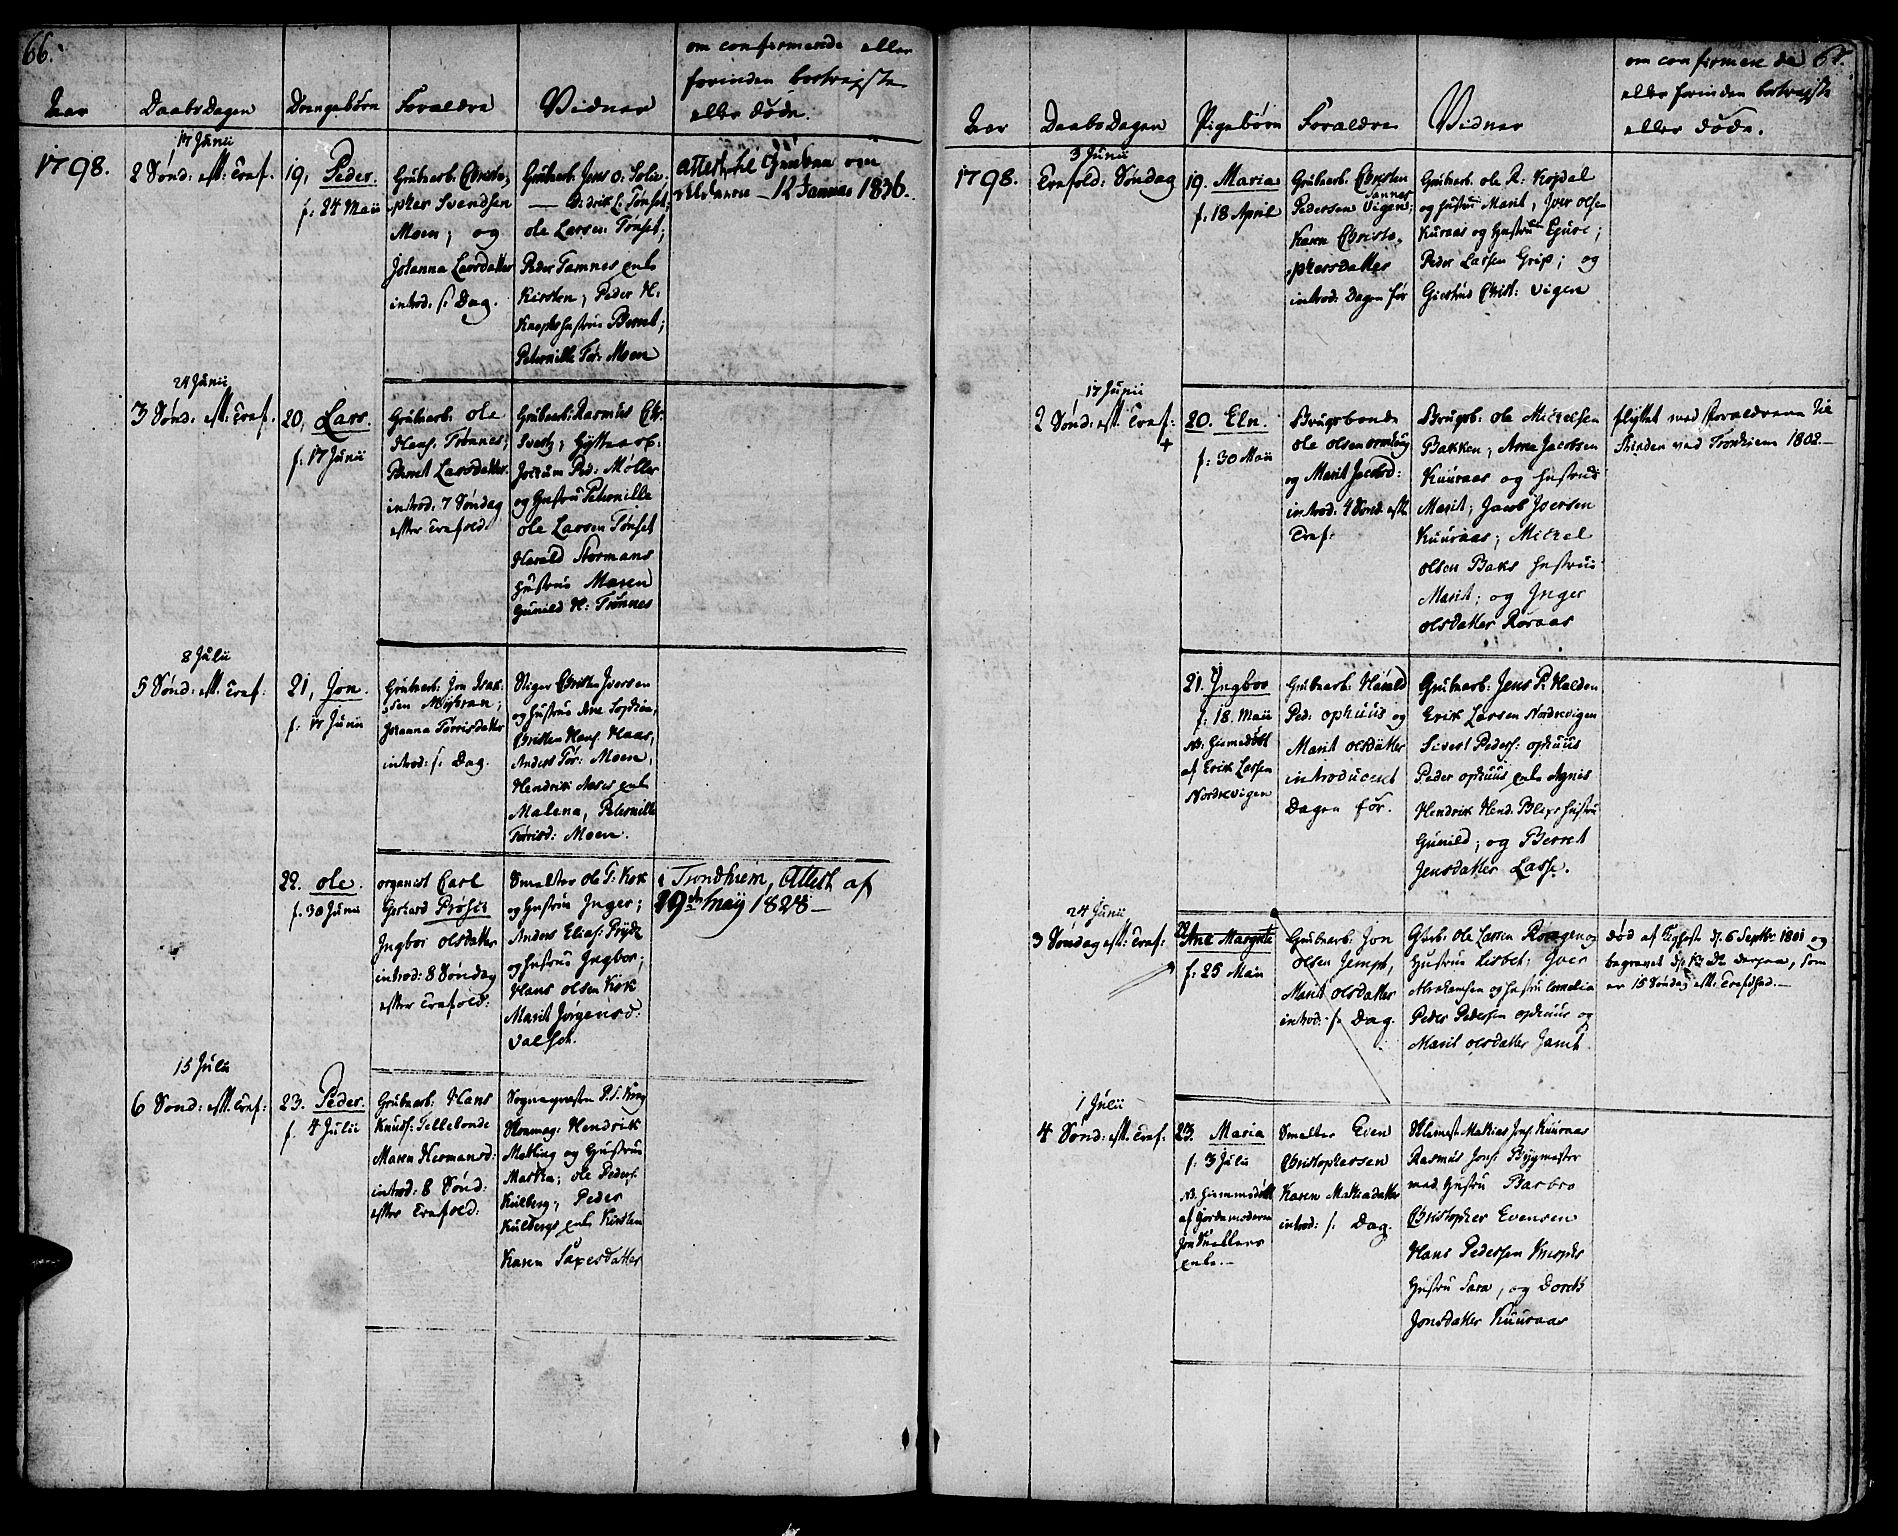 66.
Aar
Daabs Dagen
Drengebørn
Foraldre
Vidner
om confirmerede eller
forinden bortrejste
eller døde.
1798.
17 Junii
2 Sønd: eft: Tref.
19, Peder.
f: 24 Maii
Grubearb. Christo-
pher Svendsen
Moen; og
Johanna Larsdatter
introd: s: Dag.
Grubearb. Jens O.
ole Larsen Tønset;
Peder Tamnes enke
Kirsten; Peder H:
hustru Berret;
Peternille Tør: Moen
Attest til
12 Januar 1836.
24 Junii
3 Sønd: eft: Tref.
20, Lars.
f: 17 Junii
Grubearb: ole
Hans: Tønnes;
Berret Larsdatter.
introd: 7 Søndag
efter Trefold:
Grubearb: Rasmus
Jochum Ped: Møller
og Hustru Peternille
ole Larsen Tønset
Harald Stormans
Hustrue Maren
Gunild H: Tønnes
8 Julii
5 Sønd: eft: Tref:
21, Jon.
f: 17 Junii
Grubearb: Jon Isak-
sen
Johanna Tørrisdatter
introd: s: Dag.
Stiger Christen Iversen
og hustrue Ane Sophia;
Christen Hans: Haas,
Anders Tør: Moen,
Hendrik Aases enke
Malena, Peternille
Tørrisd: Moen.
22. ole.
f. 30 Junii
organist Carl
Gerhard
Ingbor olsdatter
introd: 8 Søndag
efter Trefold:
Smelter Ole T: Kok
og hustru Inger;
Anders Elias: Prytz
og hustrue Ingbor;
Hans olsen Kok
Marit Jørgensd:
Valset.
i Trondhiem, Attest af
29de May 1828
15 Julii
6 Sønd: eft: Tref:
23. Peder.
f. 4 Julii
Grubearb. Hans
Knuds: Tellebonde
Maren Hermansd:
introd: 8 Sønd:
efter Trefold:
Sognepræsten P. S. Krog
Hendrik
og Hustrue
Martha; ole Peders:
Kulberg; Peder
Kulbergs enke Kirsten
Karen Saxesdatter
67.
Aar
Daabs Dagen
Pigebørn
Foraldre
Vidner
om confirmerede
eller forinden bortrejste
eller døde.
1798.
3 Junii
Trefold: Søndag
19. Maria
f: 18 April
Grubearb. Christen
Pedersen Vigen;
Karen Christo-
phersdatter
introd: Dagen før
Grubearb. ole R: Kojdal
og hustrue Marit; Iver olsen
Kuraas og Hustrue Gjure;
Peder Larsen Grip; og
Giertrud Christ: Vigen
17 Junii
2 Sønd: eft: Tref:
+
20. Eln.
f: 30 Maii
Brugsbonde
ole olsen
og Marit Jacobsd:
introd: 4 Sønd: eft:
Tref:
Brugsb: ole Mickelsen
Bakken; Arne Jacobsen
Kuuraas og hustrue
Marit; Jacob Iversen
Kuuraas; Mickel
olsen Baks hustrue
Marit; og Inger
olsdatter Røraas
flyttet med Foraldrene til
Strinden ved Trondhiem 1802
21. Ingbor
f: 18. Maii
NB: hiemedøbt
af Erik Larsen
Nordrevigen
Grubearb. Harald
Ped: ophuus og
Marit olsdatter
introduceret
Dagen før.
Grubearb: Jens P: Halden
Erik Larsen Nordrevigen
Sivert Peders: ophuus
Peder ophuus enke Agnis
Hendrik Hend: Blixes hustru
Gunild; og Berret
Jensdatter Lasse.
24 Junii
3 Søndag eft: Tref:
22 Ane Margrete
f: 25 Maii
Grubearb. Jon
olsen Jempt,
Marit olsdatter
introd: s: Dag.
Grb: ole Larsen Rogen og
hustrue Lisbet; Iver
Abrahamsen og hustru Cornelia
Peder Pedersen ophuus og
Marit olsdatter Jamt
død af d. 6 Septbr 1801 og
begravet
er 15 Søndag eft: Trefdhed.
1 Julii
4 Sønd: eft: Tref:
23. Maria
f: 3 Julii
NB. hiemmedøbt
af Jordemoderen
Jon Snedkers
enke.
Smelter Even
Christophersen
Karen Mathiadatter
introd: s: Dag.
Mathias Jons: Kuuraas
Rasmus Jons: Bygmester
med hustru Barbro
Christopher Evensen
Hans Pedersen
hustru Sara, og Dorete
Jonsdatter Kuuraas